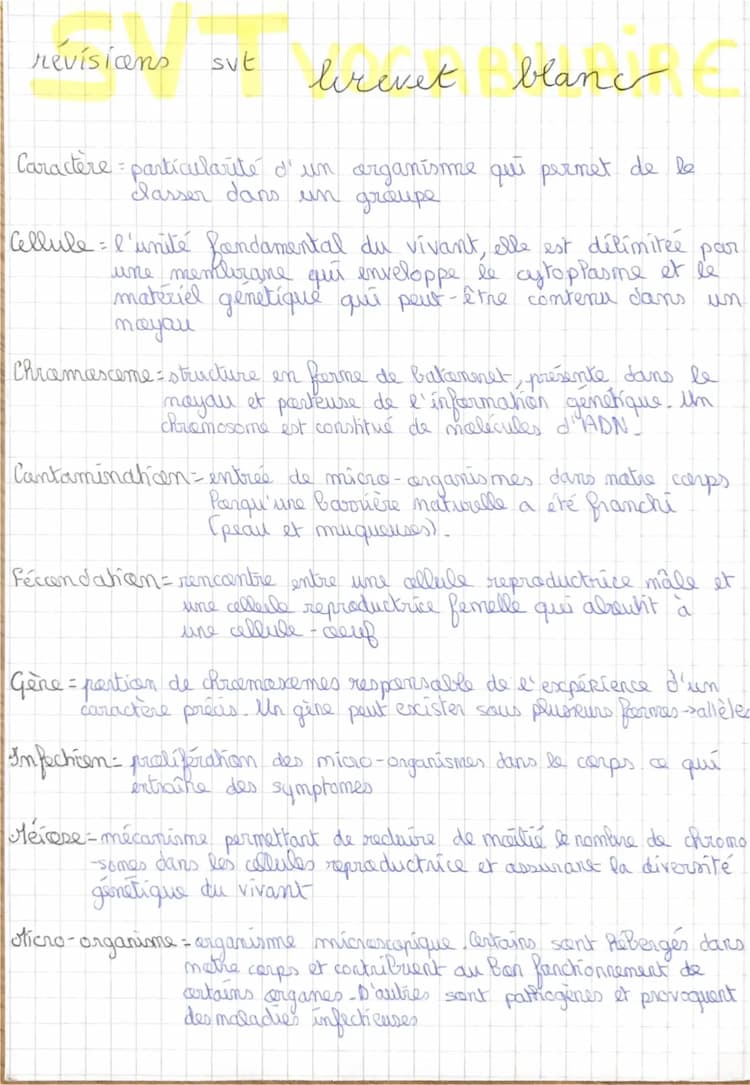 SVT VOCABULAIRE
révisions svt brevet blanc
Caractère = particularité d'un organisme qui permet de le
classer dans un groupe
Cellule = l'unité fondamental du vivant, elle est délimitée par
une membrane qui enveloppe le cytoplasme et le
matériel génétique qui peut-être contenu dans un
noyau
Chromosome = structure en forme de batonnet, présente dans le
noyau et porteuse de l'information génétique. Un
chromosome est constitué de molécules d'ADN.
Contamination = entrée de micro-organismes dans notre corps
lorsqu'une barrière naturelle a été franchi
(peau et muqueuses).
Fécondation = rencontre entre une cellule reproductrice mâle et
une cellule reproductrice femelle qui aboutit à
une cellule-oeuf
Gène = portion de chromosomes responsable de l'expérience d'un
caractère précis. Un gène peut exister sous plusieurs formes → allèles
Infection = prolifération des micro-organismes dans le corps ce qui
entraîne des symptomes
Méiose = mécanisme permettant de reduire de moitié le nombre de chromo
-somes dans les cellules reproductrice et assurant la diversité
génétique du vivant
Micro-organisme = organisme microscopique. Certains sont hébergés dans
notre corps et contribuent au bon fonctionnement de
certains organes. D'autres sont pathogènes et provoquent
des maladies infectieuses